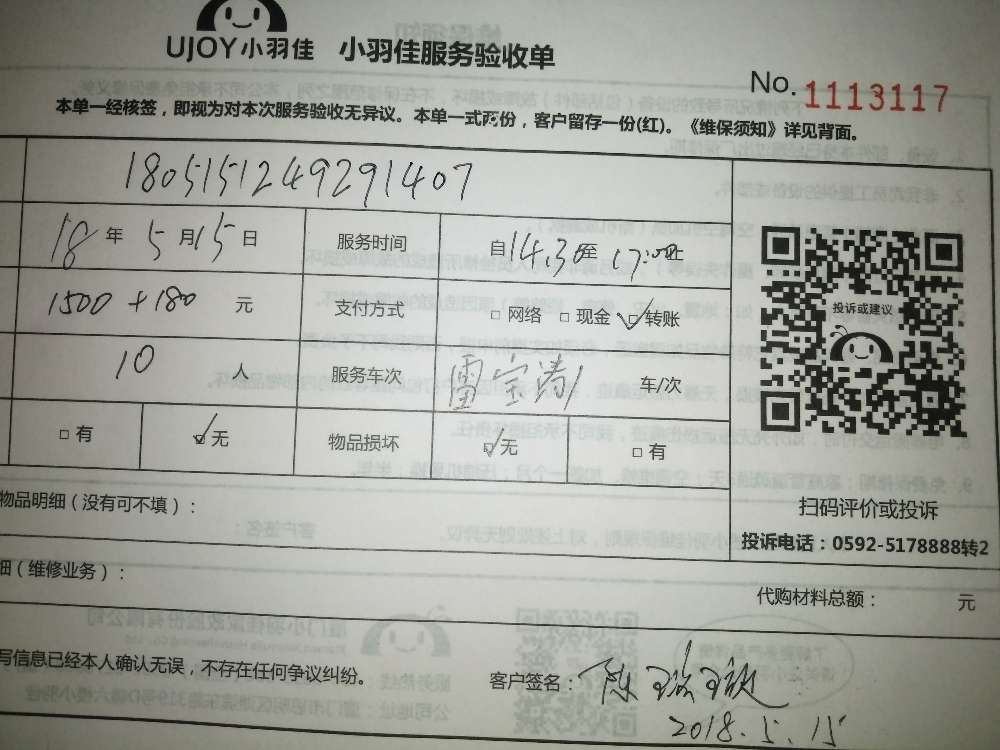 UJOY小羽佳 小羽佳服务验收单
No. 1113117
本单一经核签，即视为对本次服务验收无异议。本单一式两份，客户留存一份(红)。《维保须知》详见背面。
1805151249291407
18 年 5 月 15 日 服务时间 自 14.30 至 17:00 止
1500 + 180 元 支付方式 □ 网络 □ 现金 ☑ 转账
10 人 服务车次 雷宝涛 车/次
□ 有 ☑ 无 物品损坏 ☑ 无 □ 有
投诉或建议
扫码评价或投诉
投诉电话：0592-5178888转2
物品明细（没有可不填）：
细（维修业务）：
代购材料总额： 元
写信息已经本人确认无误，不存在任何争议纠纷。 客户签名：陈
2018.5.15